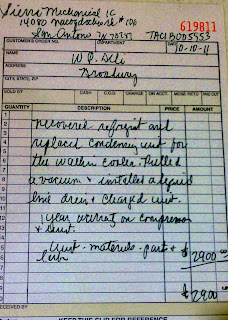 Sierra Mechanical
14080 Nacogdoches # 106
619811
San Antonio TX
CUSTOMER'S ORDER NO. DEPARTMENT DATE
10-10-11
NAME
W.D. Deli
ADDRESS
Broadway
CITY, STATE, ZIP
SOLD BY CASH C.O.D. CHARGE ON ACCT. MDSE RETD PAID OUT
QUANTITY DESCRIPTION PRICE AMOUNT
1 recovered and
2 replaced condensing unit for
3 the walkin cooler. Pulled
4 a vacuum & installed a liquid
5 line drier & charged unit.
1 year on compressor
&
unit - materials - part &
$2900
$2900
RECEIVED BY
KEEP THIS SLIP FOR REFERENCE